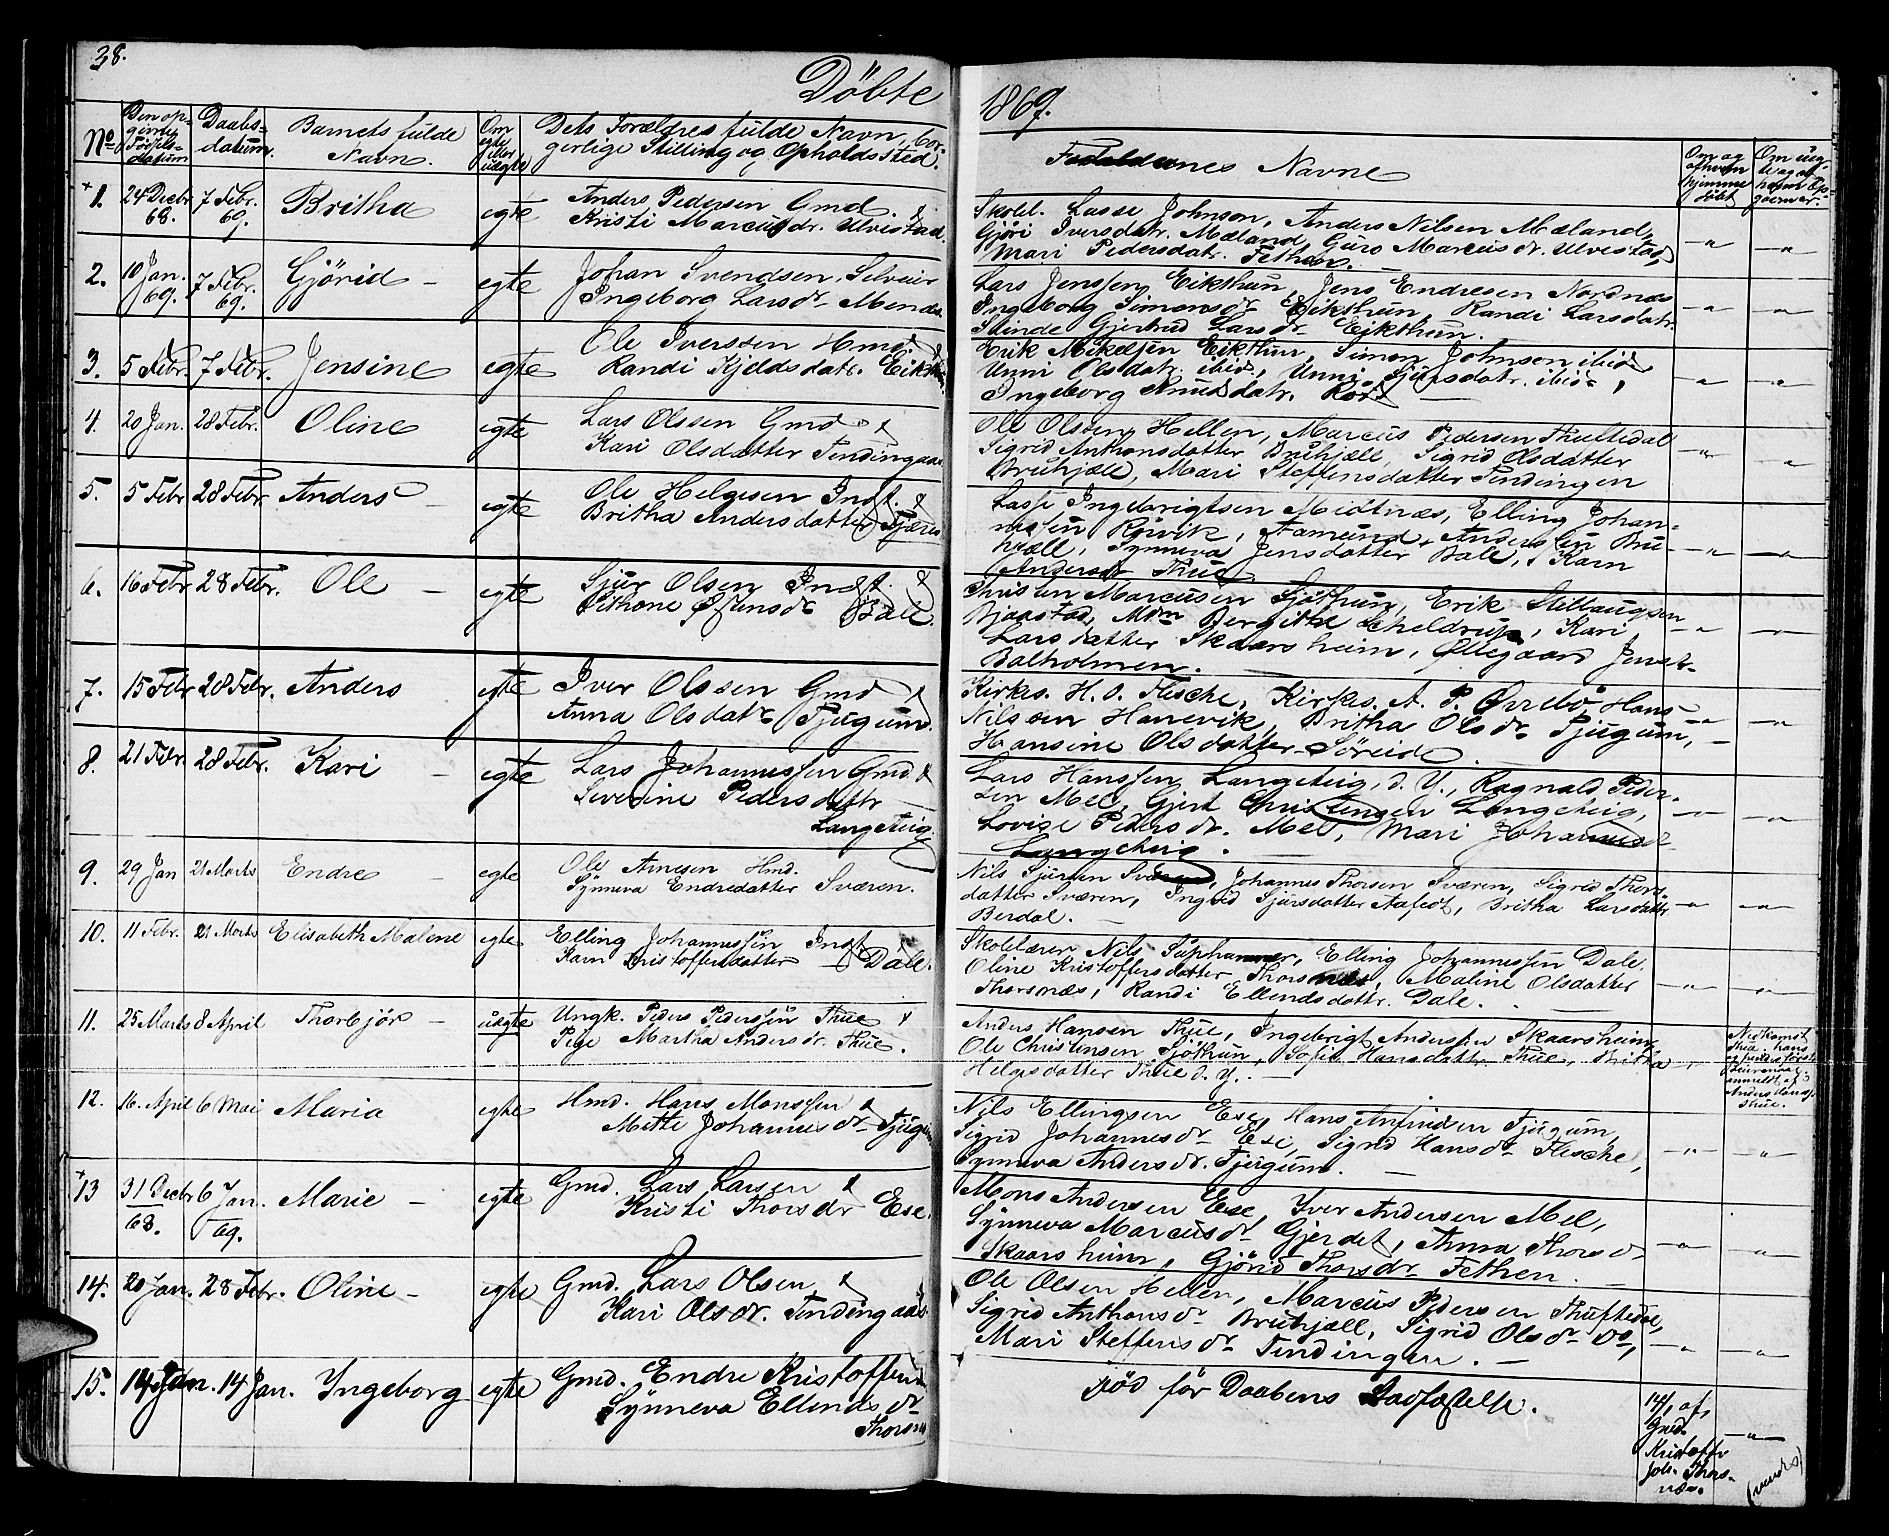 38.
Döbte
1869.
No
Den op-
givne
Födsels-
datum
Daabs-
datum.
Barnets fulde
Navn.
Om
egte
eller
uægte
Dets Forældres fulde Navn, bor-
gerlige Stilling og Opholdssted.
Faddernes Navne
Om og
af hvem
hjemme
döbt
1. 24 Decbr 68. 7 Febr. 69. Britha egte
Anders Pedersen Gmd.
Kristi Marcusdr. Ulvestad.
Skolel. Lasse Johnson, Anders Nilsen Mæland,
Gjöri Iversdatr. Mæland, Guro Marcusdr. Ulvestad,
Mari Pedersdatr. Fethen.
2. 10 Jan. 69. 7 Febr. 69. Gjörid - egte
Johan Svendsen, Selveier
Ingeborg Larsdr. Mendes
Lars Jenssen Eikthun, Jens Endresen Nordnæs
Ingeborg Simonsdr. Eikthun, Randi Larsdatr.
Slinde Gjertrud Larsdr. Eikthun.
3. 5 Febr. 7 Febr. Jensine egte
Ole Iverssen Hmd
Randi Kjeldsdatr. Eikthun
Erik Mikelsen Eikthun, Simon Johnsen ibid.
Unni Olsdatr. ibid., Unni Sjursdatr. ibid.,
Ingeborg Knudsdatr.
4. 20 Jan. 28 Febr. Oline egte
Lars Olssen Gmd
Kari Olsdatter Tendingaas
Ole Olssen Hellen, Marcus Pedersen Thuftedal
Sigrid Anthonsdatter Bruhjæll, Sigrid Olsdatter
Bruhjæll, Mari Steffensdatter Tendingen
5. 5 Febr 28 Febr. Anders - egte
Ole Helgesen Indst.
Britha Andersdatter
Lasse Ingebrigtsen Midtnæs, Elling Johan-
nessen Rörvik, Aamund Anderssen Bru-
hjæll, Synneva Jensdatter Bale, Karn
Andersdr Thue
6. 16 Febr 28 Febr. Ole - egte
Sjur Olsen Indst.
Bale
Christen Marcusen Sjöthun, Erik
Njaastad, Mdm Bergitte Scheldrup, Kari
Larsdatter Skaarsheim, Ollegaard Jensd-
Balholmen.
7. 15 Febr 28 Febr. Anders egte
Iver Olssen Gmd
Anna Olsdatr. Tjugum.
Kirkes. H. O. Flesche, Kirkes. A. P. Örrebö, Hans
Nilssen Hanevik, Britha Olsdr. Tjugum,
Hansine Olsdatter Söreide.
8. 21 Febr. 28 Febr. Kari - egte
Lars Johannessen Gmd.
Severine Pedersdattr
Langeteig.
Lars Hanssen Langeteig, d. Y., Ragnald Peder-
sen Mel, Gjert Christensen Langeteig,
Lovise Pedersdr. Mel, Mari Johannesd-
Langeteig.
9. 29 Jan 21 Marts Endre - egte
Ole Arnesen Hmd.
Synneva Endredatter Sværen.
Nils Sjursen Sværen, Johannes Thorsen Sværen, Sigrid Thors-
datter Sværen, Ingrid Sjursdatter Aafedt, Britha Larsdatter
Berdal.
10. 11 Febr. 21 Marts Elisabeth Malene egte
Elling Johannessen Indst
Karn Kristoffersdatter Dale.
Skolelærer Nils Suphammer, Elling Johannessen Dale,
Oline Kristoffersdatter Thorsnæs, Maline Olsdatter
Thorsnæs, Randi Ellendsdattr. Dale.
11. 25 Marts 8 April Thorbjör - uægte
Ungk. Peder Pedersen Thue
Pige Martha Andersdr. Thue.
Anders Hansen Thue, Ingebrigt Anderssen Skaarsheim,
Ole Christensen Sjöthun, Sofie Hansdatter Thue, Britha
Helgesdatter Thue d. Y.
12. 16. April 6 Mai Maria egte
Hmd. Hans Monssen
Mette Johannesdr. Tjugum
Nils Ellingsen Ese, Hans Anfindsen Tjugum,
Sigrid Johannesdr. Ese, Sigrid Hansdr. Flesche,
Synneva Andersdr. Tjugum.
13 31 Decbr 68. 6 Jan. 69. Marie - egte
Gmd. Lars Larsen
Kristi Thorsdr Ese.
Mons Andersen Ese, Iver Andersen Mel,
Synneva Marcusdr. Gjerdet, Anna Thorsd-
Skaarsheim, Gjörid Thorsdr. Fethen.
14. 20 Jan. 28 Febr. Oline - egte
Gmd. Lars Olsen
Kari Olsdr. Tendingaas
Ole Olsen Hellen, Marcus Pedersen Thuftedal,
Sigrid Anthonsdr. Bruhjæll, Sigrid Olsdr. Do,
Mari Steffensdr. Tendingen.
15. 14 Jan. 14 Jan. Ingeborg egte
Gmd. Endre Kristoffersen
Synneva Ellendsdr
Thorsnæs
Död för Daabens Stadfæstelse.
14/1 af
Gmd.
Kristoffer
Joh. Thors-
næs.
(vends)